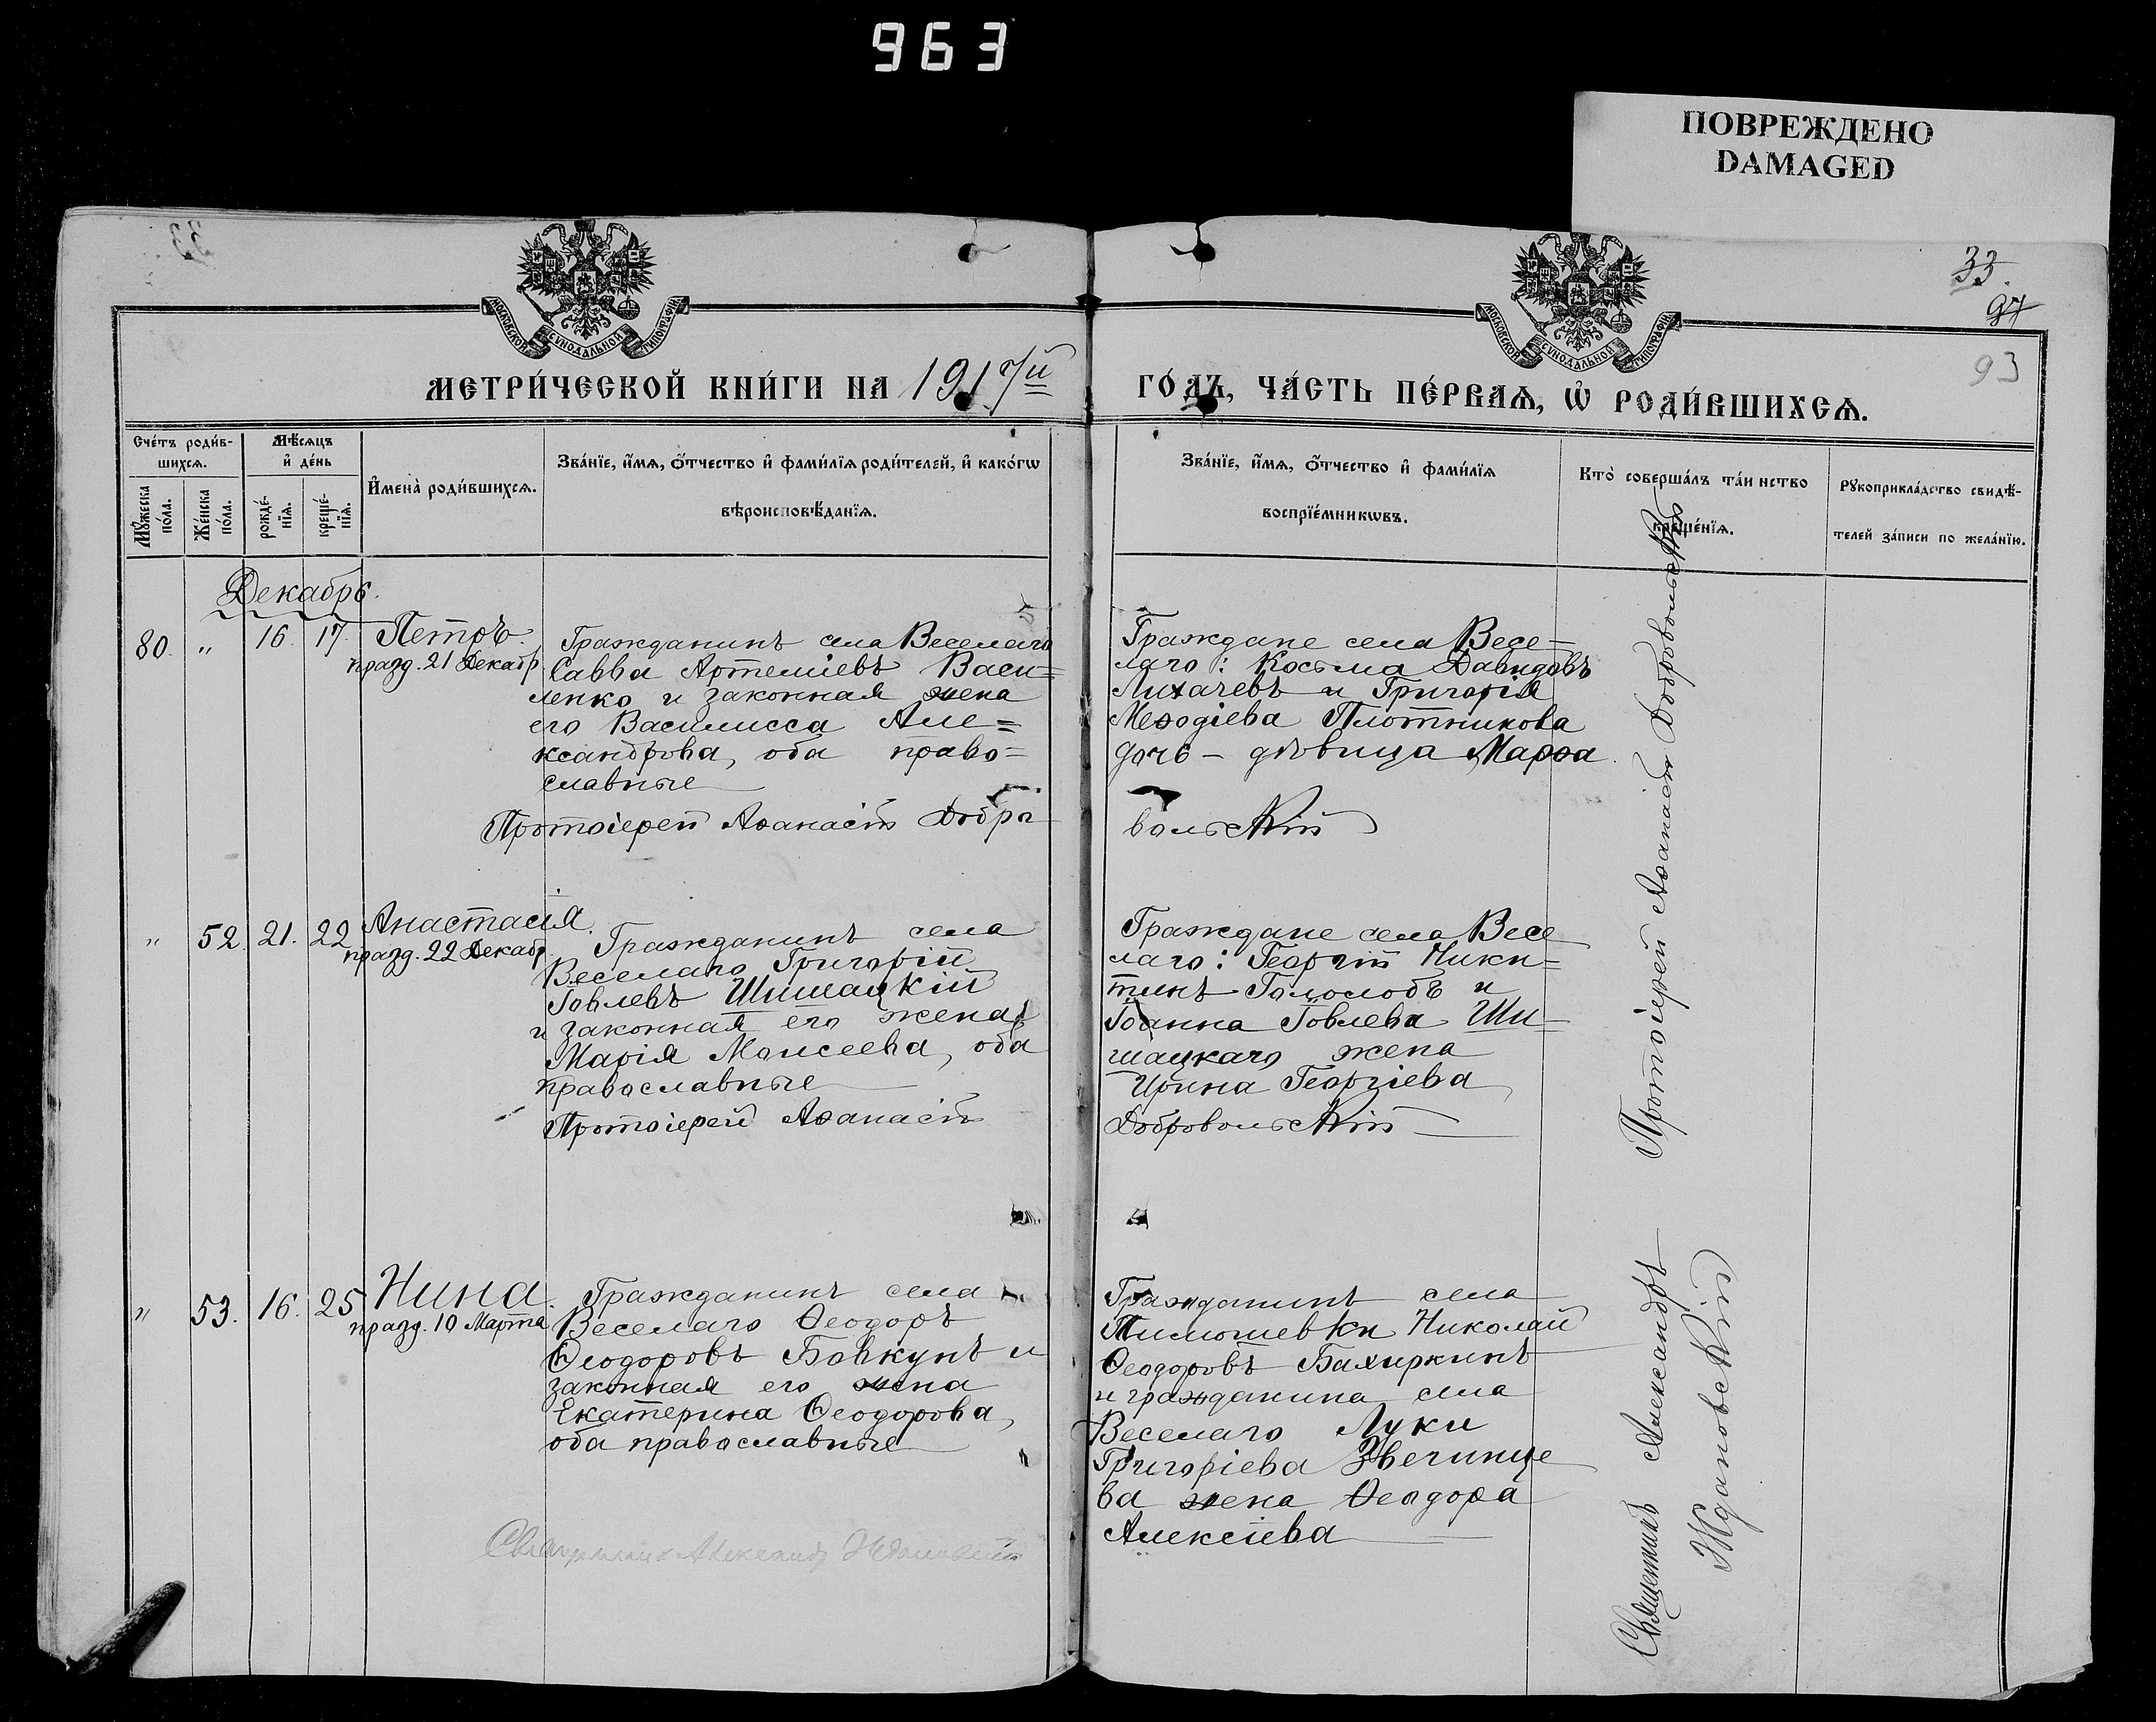 963
ПОВРЕЖДЕНО
DAMAGED
33
33.
97
93
МОСКОВСКОЙ СѴНОДАЛЬНОЙ ТИПОГРАФІИ
МОСКОВСКОЙ СѴНОДАЛЬНОЙ ТИПОГРАФІИ
МЕТРИ́ЧЕСКОЙ КНИ́ГИ НА 1917й ГО́ДЪ, ЧА́СТЬ ПЕ́РВАѦ, Ѡ҆ РОДИ́ВШИХСѦ.
Сче́тъ роди́в-
шихсѧ.
Мꙋ́жеска по́ла.
Же́нска по́ла.
Мѣ́сѧцъ
и҆ де́нь
рожде́-
нїѧ.
креще́-
нїѧ.
И҆мена̀ роди́вшихсѧ.
Зва́нїе, и҆́мѧ, ѻ҆́тчество и҆ фами́лїѧ роди́телей, и҆ како́гѡ
вѣроисповѣ́данїѧ.
Зва́нїе, и҆́мѧ, ѻ҆́тчество и҆ фами́лїѧ
воспрїе́мникѡвъ.
Кто̀ соверша́лъ та́инство
креще́нїѧ.
Рꙋкоприкла́дство свидѣ́-
телей за́писи по жела́нїю.
Декабрь.
80. " 16. 17. Петръ.
празд. 21 Декабр.
Гражданинъ села Веселаго
Савва Артеміевъ Васи=
ленко и законная жена
его Василисса Але=
ксандрова, оба право=
славные
Граждане села Весе=
лаго: Косьма Давидовъ
Лихачевъ и Григорія
Меѳодіева Плотникова
дочь – дѣвица Марѳа.
Протоіерей Аѳанасій Добро
вольскій
" 52. 21. 22. Анастасія.
празд. 22 Декабр.
Гражданинъ села
Веселаго Григорій
Іовлевъ Шишацкій
и законная его жена
Марія Моисеева, оба
православные
Граждане села Весе
лаго: Георгій Ники=
тинъ Гололобъ и
Іоанна Іовлева Ши=
шацкаго жена
Ирина Георгіева
Протоіерей Аѳанасій
Добровольскій
" 53. 16. 25. Нина.
празд. 10 Марта
Гражданинъ села
Веселаго Ѳеодоръ
Ѳеодоровъ Бовкунъ и
законная его жена
Екатерина Ѳеодорова,
оба православные
Гражданинъ села
Тимошевки Николай
Ѳеодоровъ Бахиркинъ
и гражданина села
Веселаго Луки
Григоріева Звечинце
ва жена Ѳеодора
Алексіева
Священникъ Александръ Ждановскій
Протоіерей Аѳанасій Добровольскій
Священникъ Александръ
Ждановскій